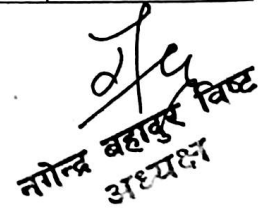 नगेन्द्र बहादुर विष्ट
अध्यक्ष